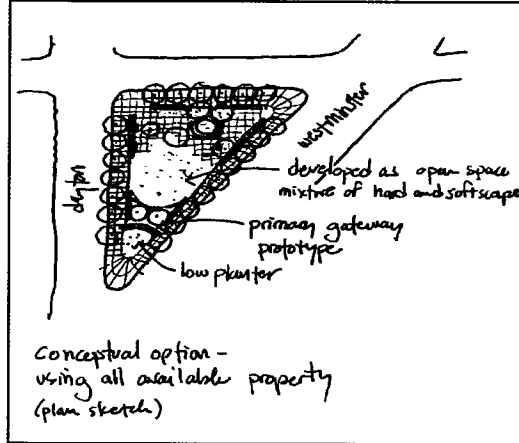 westminster
dayton
developed as open space
mixture of hard and softscape
primary gateway
prototype
low planter
Conceptual option -
using all available property
(plan sketch)